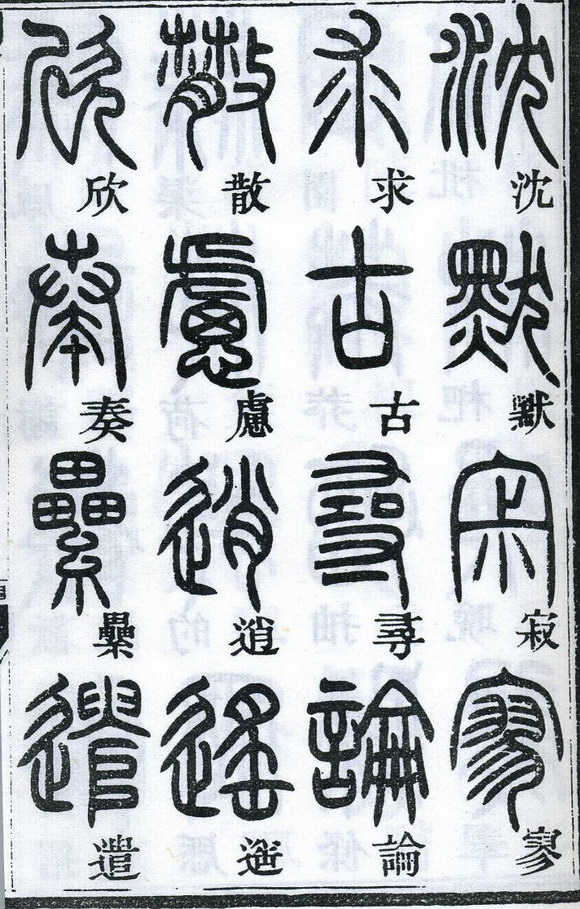 沈默寂寥
求古尋論
散慮逍遙
欣奏纍遣